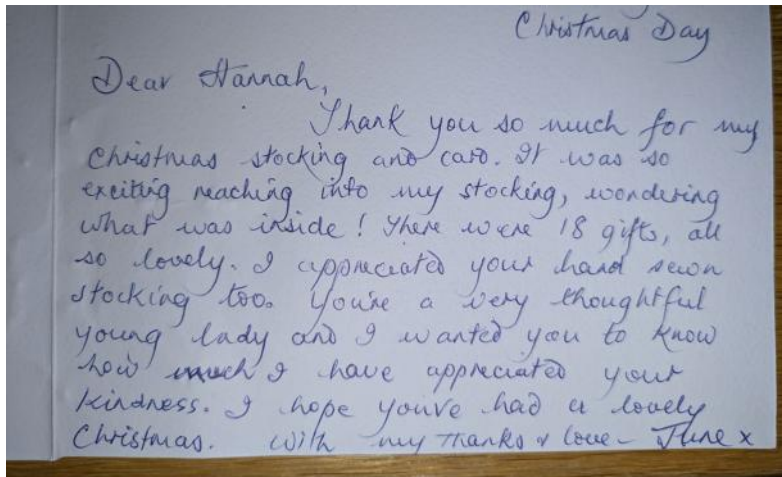 Christmas Day
Dear Hannah,
Thank you so much for my
Christmas stocking and card. It was so
exciting reaching into my stocking, wondering
what was inside! There were 18 gifts, all
so lovely. I appreciated your hand sewn
stocking too. You're a very thoughtful
young lady and I wanted you to know
how much I have appreciated your
kindness. I hope you've had a lovely
Christmas. With my thanks & love - June x